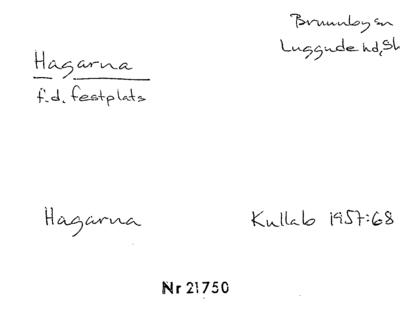 Brunnby sn
Luggude hd, Sk
Hagarna
f.d. festplats
Hagarna
Kullab 1957:68
Nr 21750